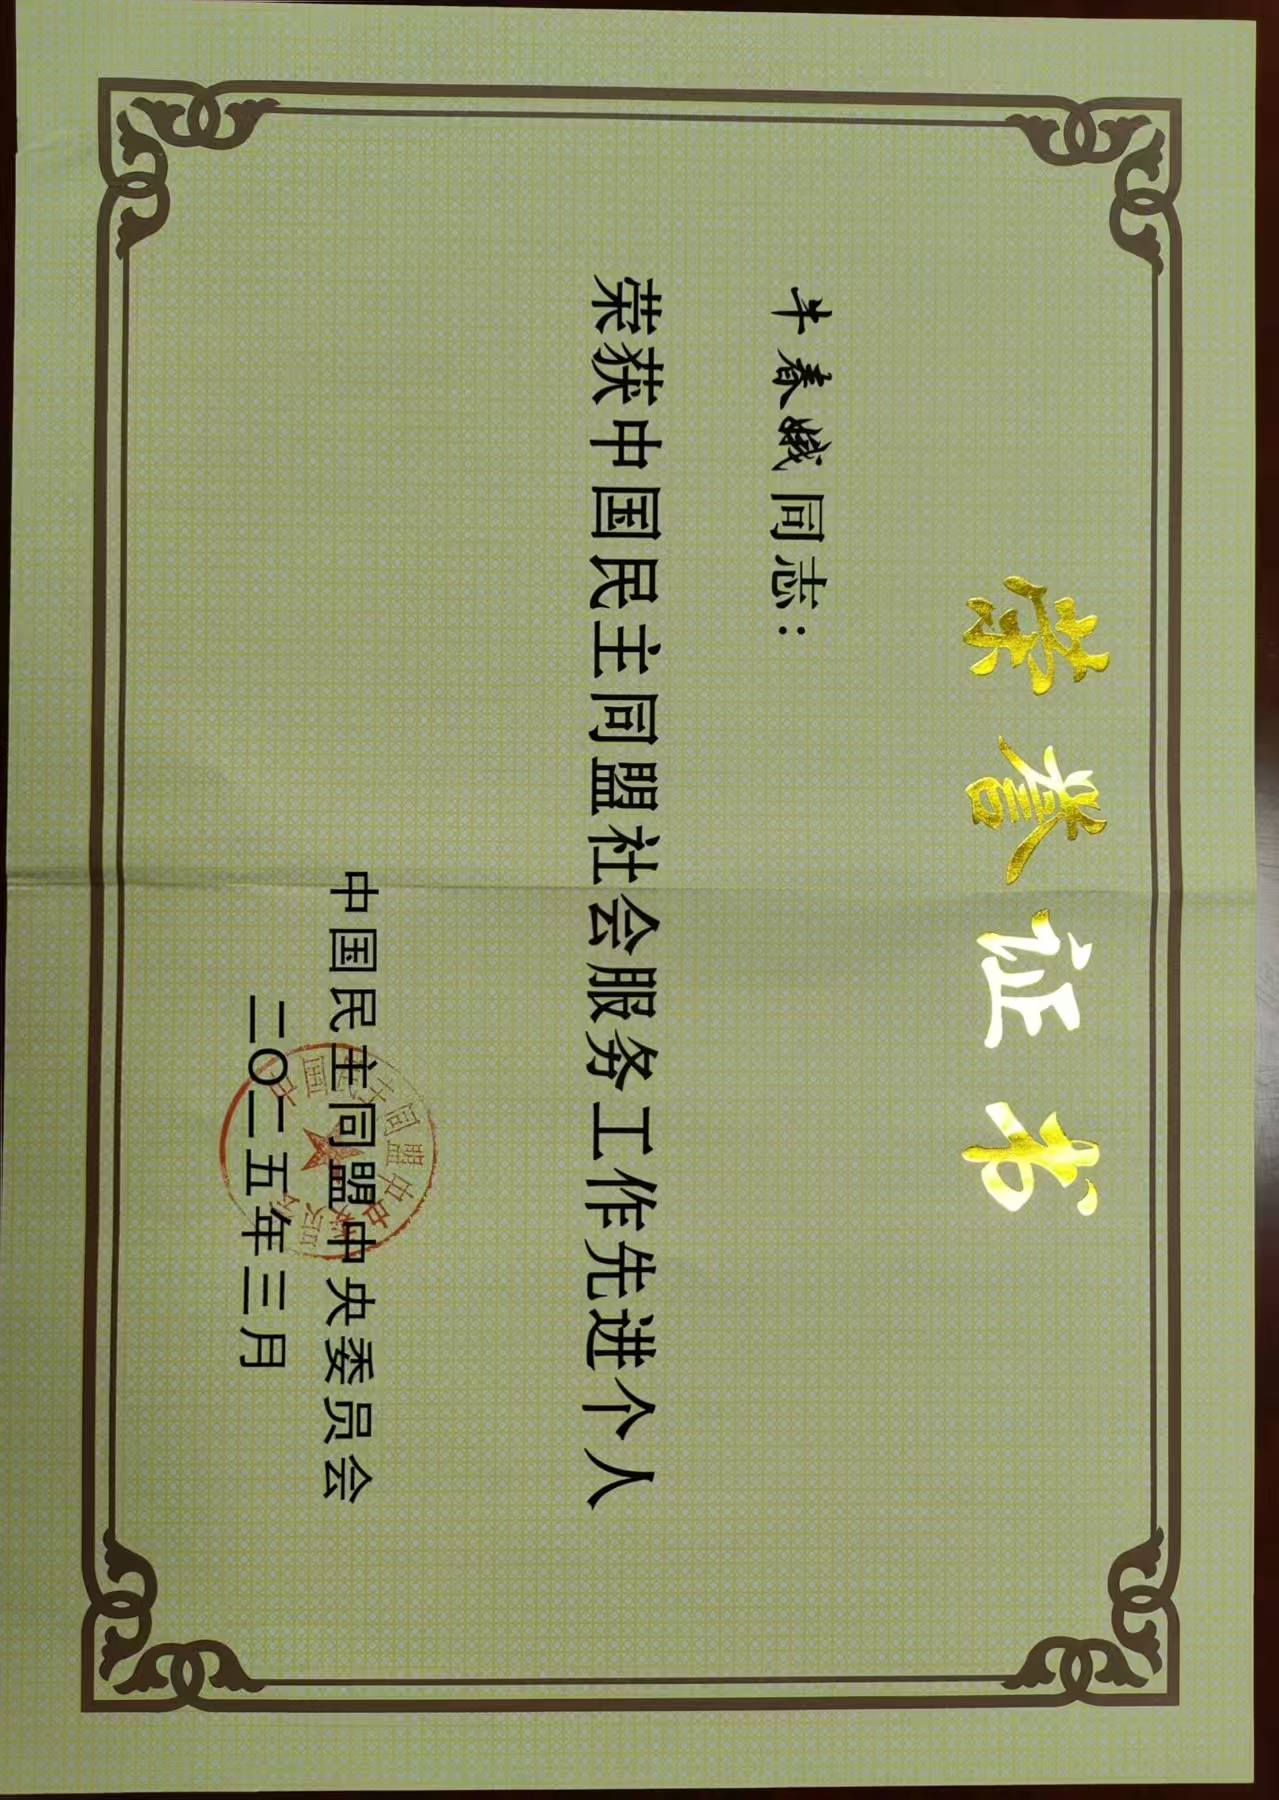 荣誉证书
牛春娥同志：
荣获中国民主同盟社会服务工作先进个人
中国民主同盟中央委员会
二〇二五年三月
中国民主同盟中央委员会